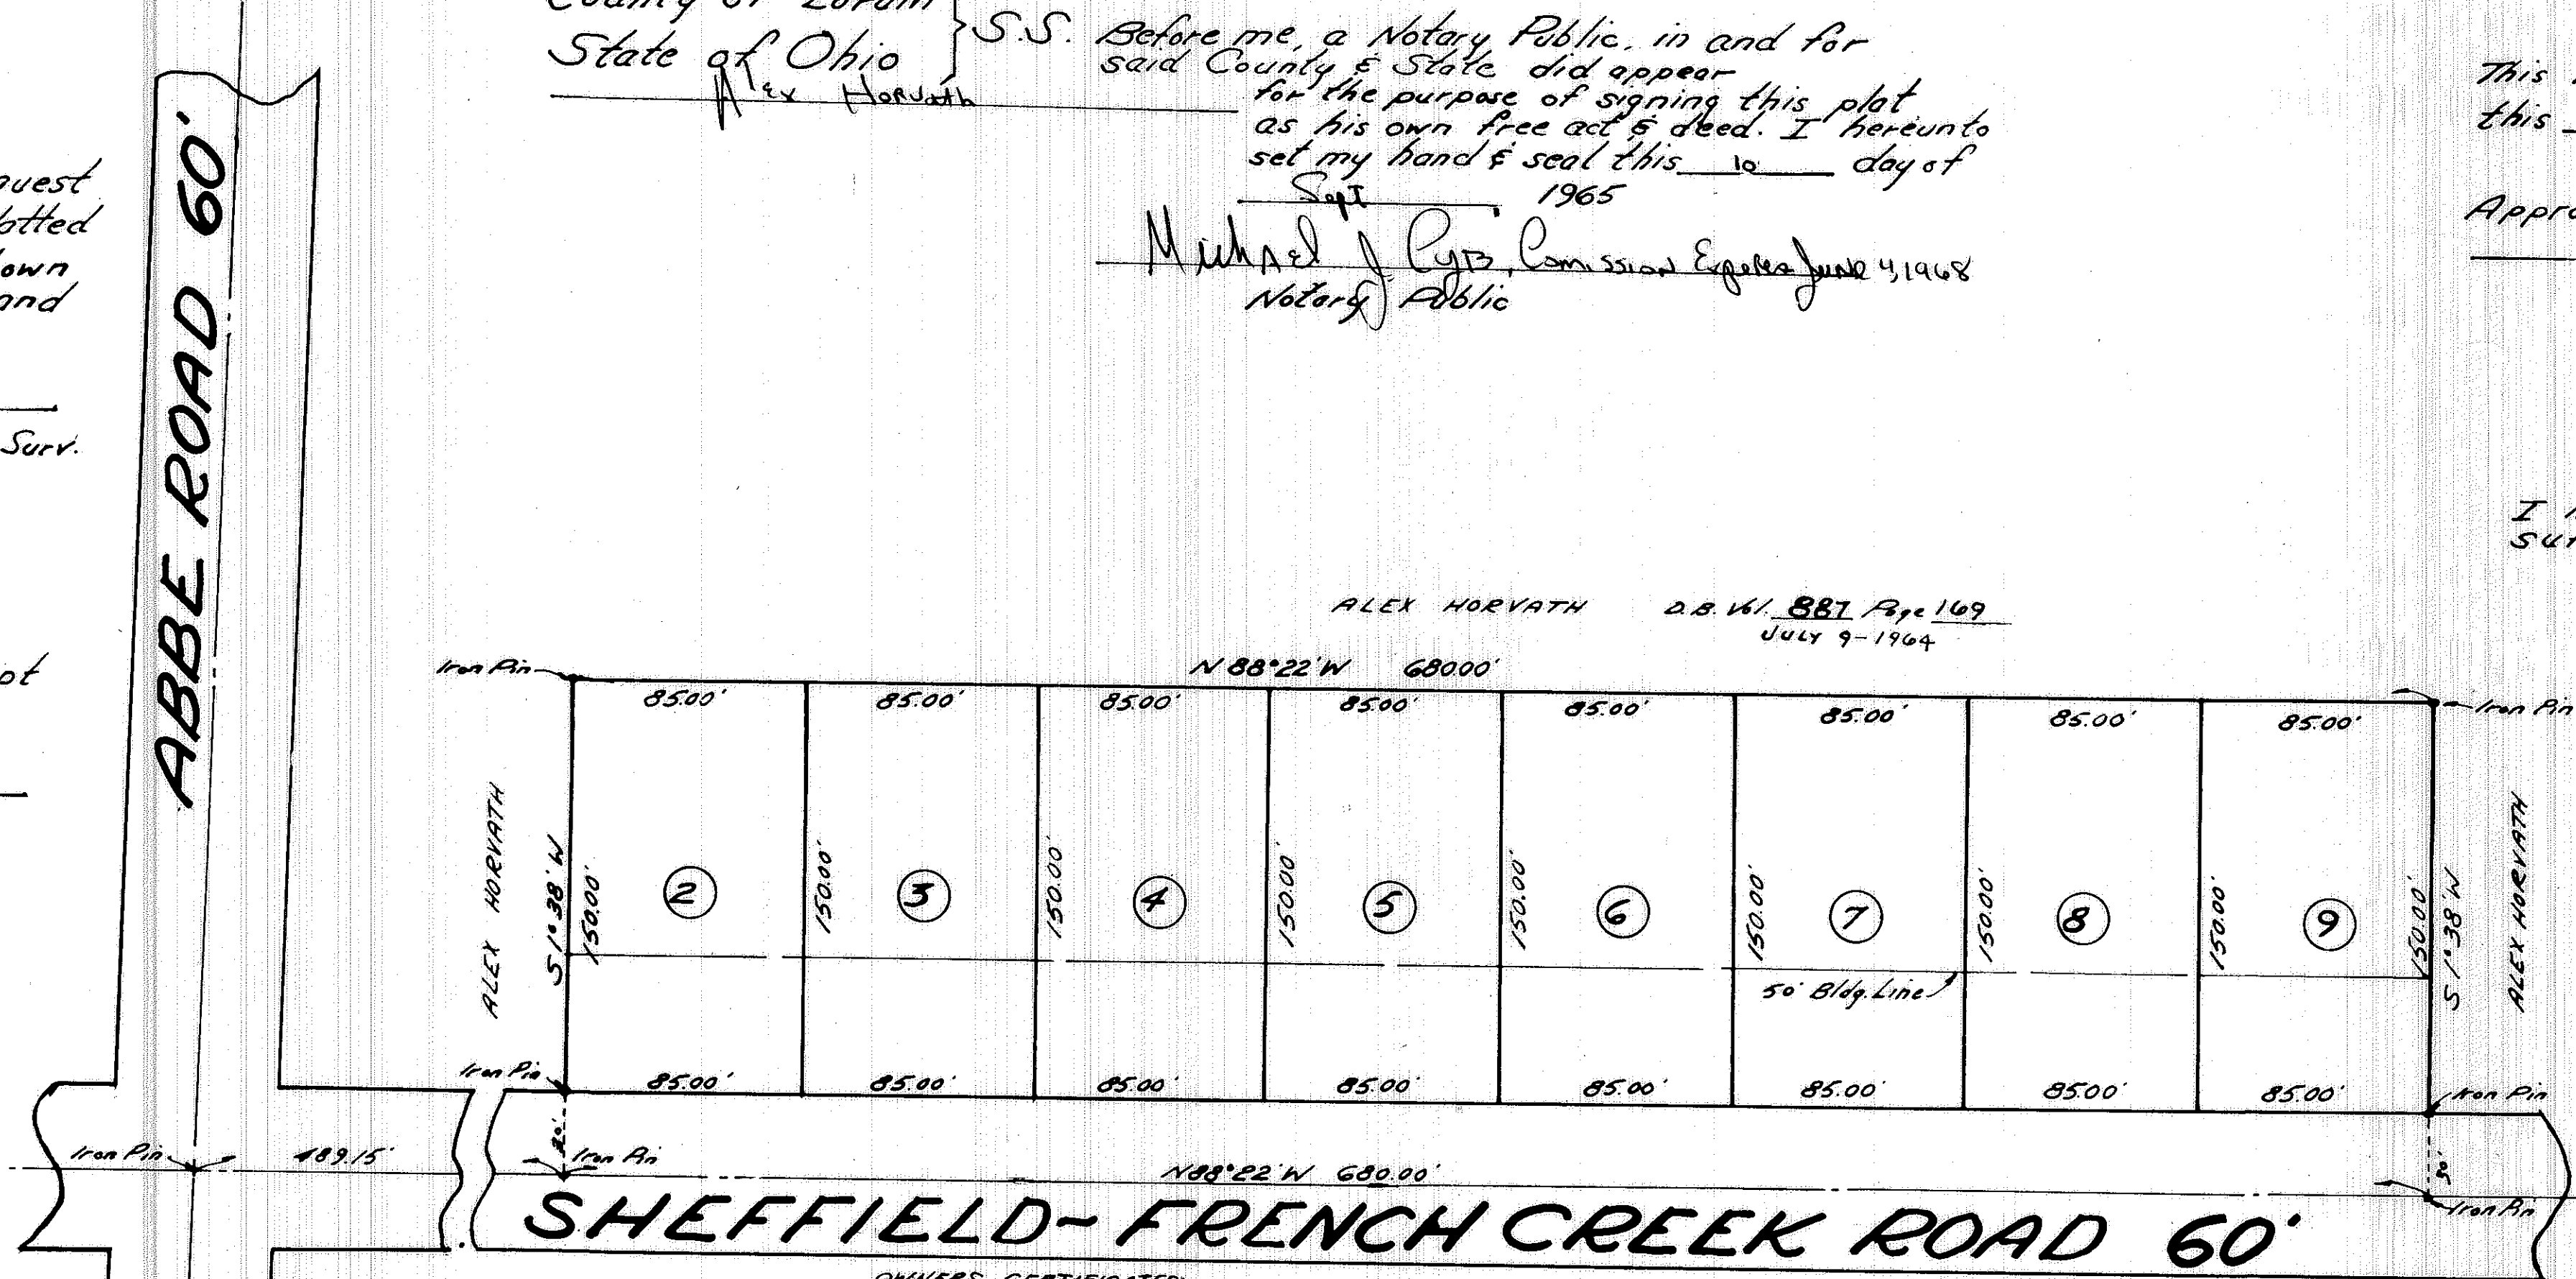 County of Lorain
State of Ohio } S.S.
Alex Horvath
Before me, a Notary Public, in and for
said County & State did appear
for the purpose of signing this plat
as his own free act & deed. I hereunto
set my hand & seal this 10 day of
Sept 1965
Michael J Cyb, Comission Expires June 4, 1968
Notary Public
own
and
Surv.
This
this
I
ABBE ROAD 60'
ALEX HORVATH D.B. Vol. 887 Page 169
JULY 9-1964
Iron Pin
N 88°22'W 680.00'
Iron Pin
85.00' 85.00' 85.00' 85.00' 85.00' 85.00' 85.00' 85.00'
ALEX HORVATH
S 1°38'W
150.00' 150.00' 150.00' 150.00' 150.00' 150.00' 150.00' 150.00' 150.00'
S 1°38'W
ALEX HORVATH
2 3 4 5 6 7 8 9
50' Bldg. Line
Iron Pin
85.00' 85.00' 85.00' 85.00' 85.00' 85.00' 85.00' 85.00'
Iron Pin
Iron Pin
489.15'
30'
Iron Pin
N88°22'W 680.00'
30'
Iron Pin
SHEFFIELD~FRENCH CREEK ROAD 60'